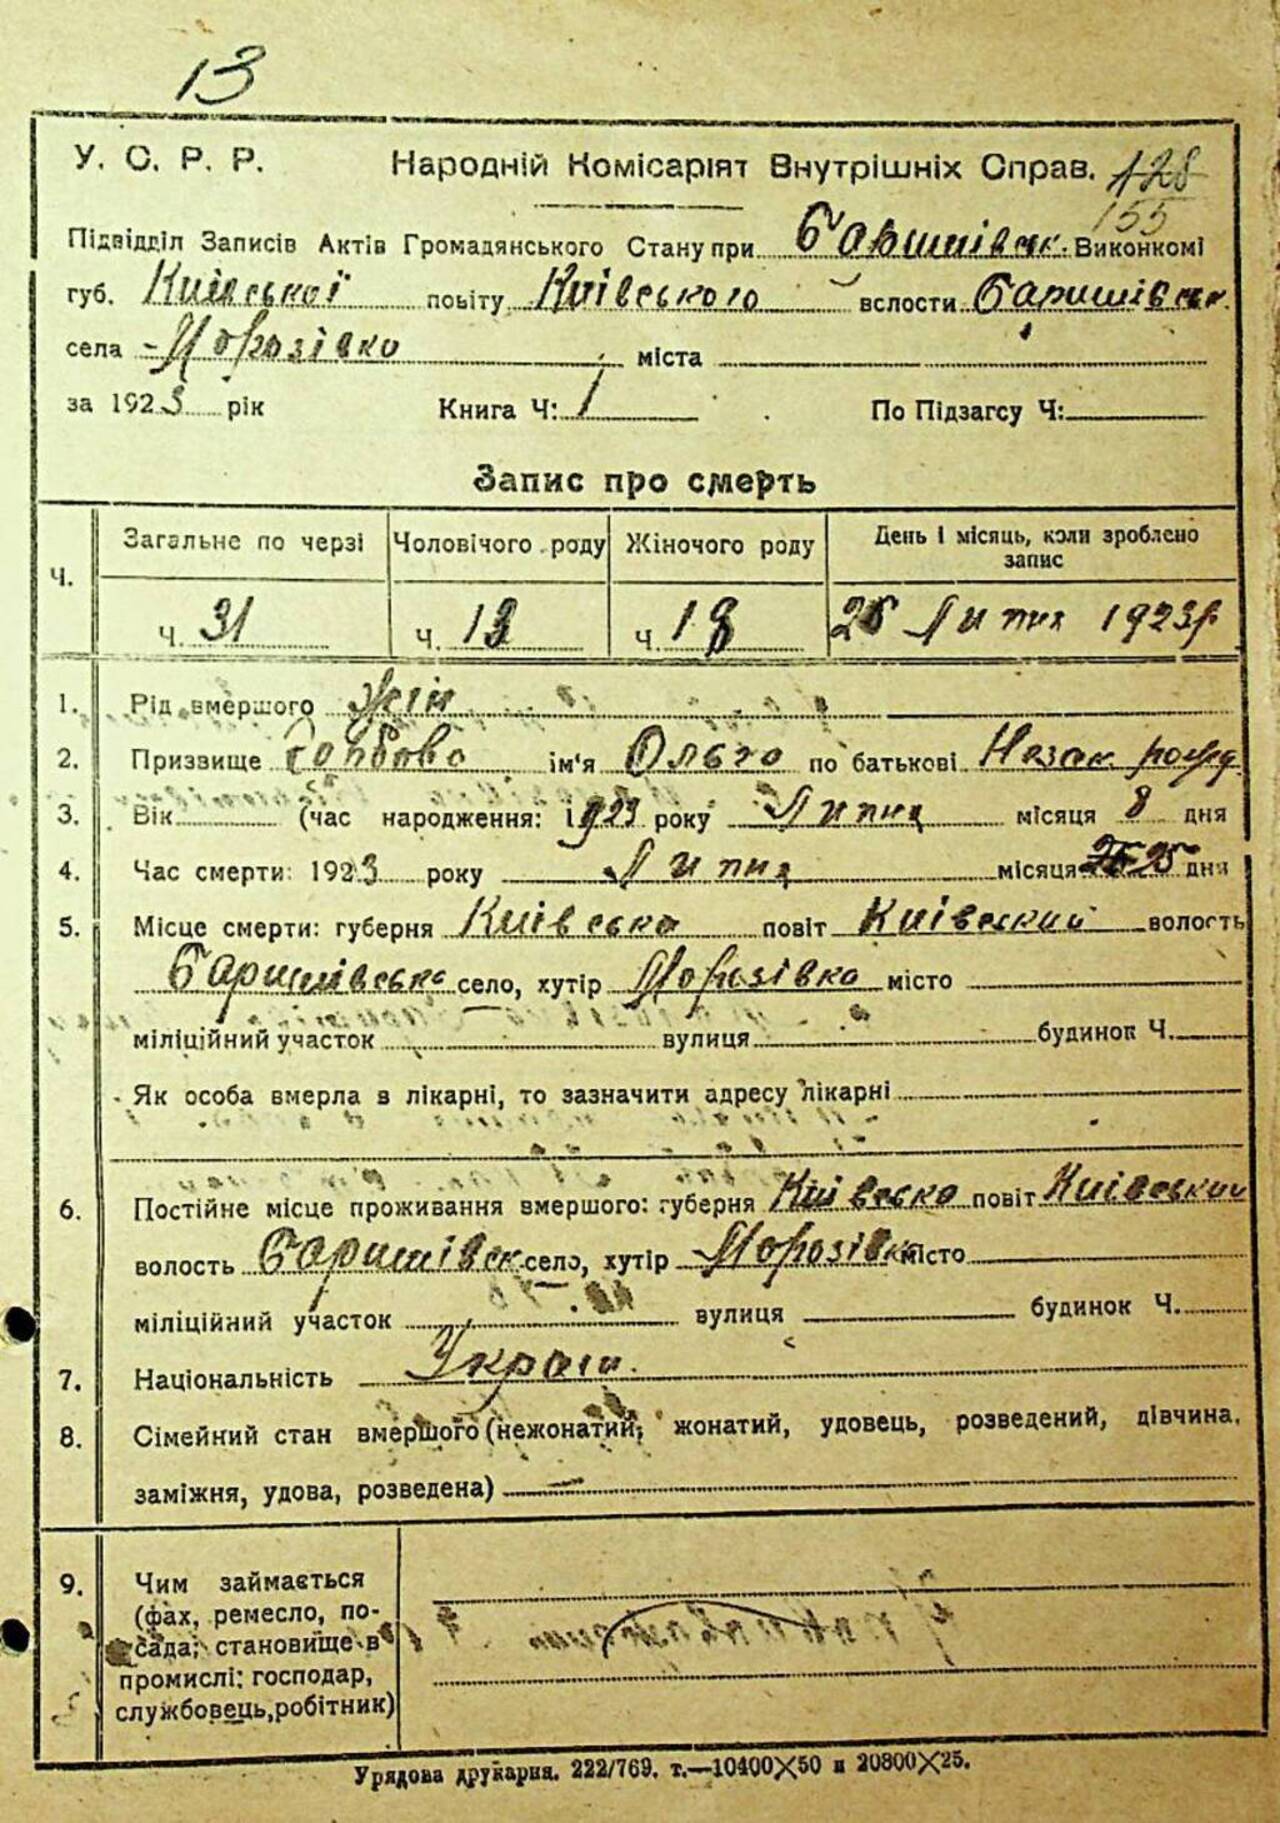 13
У. С. Р. Р. Народній Комісаріят Внутрішніх Справ. 128
155
Підвідділ Записів Актів Громадянського Стану при Баришівськ. Виконкомі
губ. Київської повіту Київського волости Баришівськ.
села Морозівка міста
за 1923 рік Книга Ч: 1 По Підзагсу Ч:
Запис про смерть
Ч. Загальне по черзі Чоловічого роду Жіночого роду День і місяць, коли зроблено запис
Ч. 31 Ч. 13 Ч. 18 26 Липня 1923р
1. Рід вмершого Жін
2. Призвище Горбова ім'я Ольга по батькові Незак.
3. Вік (час народження: 1923 року Липня місяця 8 дня
4. Час смерти: 1923 року Липня місяця 25 дня
5. Місце смерти: губерня Київська повіт Київський волость
Баришівська село, хутір Морозівка місто
міліційний участок вулиця будинок Ч.
Як особа вмерла в лікарні, то зазначити адресу лікарні
6. Постійне місце проживання вмершого: губерня Київська повіт Київський
волость Баришівськ село, хутір Морозівка місто
міліційний участок вулиця будинок Ч.
7. Національність Україн.
8. Сімейний стан вмершого (нежонатий, жонатий, удовець, розведений, дівчина,
заміжня, удова, розведена) —
9. Чим займається
(фах, ремесло, по-
сада; становище в
промислі: господар,
службовець, робітник)
Урядова друкарня. 222/769. т.—10400X50 и 20800X25.